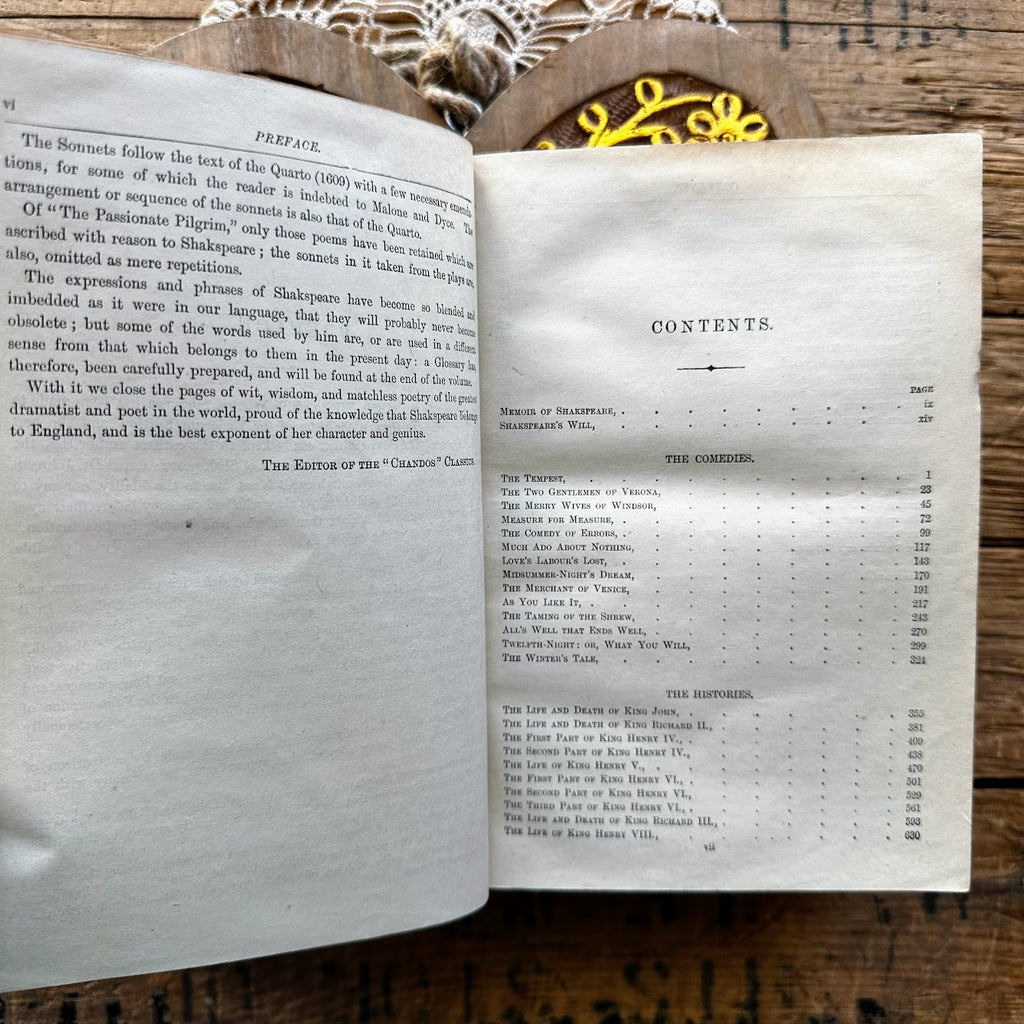 vi
PREFACE.
The Sonnets follow the text of the Quarto (1609) with a few necessary emenda-
tions, for some of which the reader is indebted to Malone and Dyce. The
arrangement or sequence of the sonnets is also that of the Quarto.
Of “The Passionate Pilgrim,” only those poems have been retained which are
ascribed with reason to Shakspeare; the sonnets in it taken from the plays are,
also, omitted as mere repetitions.
The expressions and phrases of Shakspeare have become so blended and
imbedded as it were in our language, that they will probably never become
obsolete; but some of the words used by him are, or are used in a different
sense from that which belongs to them in the present day: a Glossary has,
therefore, been carefully prepared, and will be found at the end of the volume.
With it we close the pages of wit, wisdom, and matchless poetry of the greatest
dramatist and poet in the world, proud of the knowledge that Shakspeare belongs
to England, and is the best exponent of her character and genius.
THE EDITOR OF THE “CHANDOS” CLASSICS.
CONTENTS.
PAGE
MEMOIR OF SHAKSPEARE, . . . . . . . . ix
SHAKSPEARE'S WILL, . . . . . . . . xiv
THE COMEDIES.
THE TEMPEST, . . . . . . . . . 1
THE TWO GENTLEMEN OF VERONA, . . . . . . . 23
THE MERRY WIVES OF WINDSOR, . . . . . . . 45
MEASURE FOR MEASURE, . . . . . . . . . 72
THE COMEDY OF ERRORS, . . . . . . . . . 99
MUCH ADO ABOUT NOTHING, . . . . . . . . 117
LOVE'S LABOUR'S LOST, . . . . . . . . . 143
MIDSUMMER-NIGHT'S DREAM, . . . . . . . . 170
THE MERCHANT OF VENICE, . . . . . . . . 191
AS YOU LIKE IT, . . . . . . . . . . 217
THE TAMING OF THE SHREW, . . . . . . . . 243
ALL'S WELL THAT ENDS WELL, . . . . . . . . 270
TWELFTH-NIGHT: OR, WHAT YOU WILL, . . . . . . . 299
THE WINTER'S TALE, . . . . . . . . . 324
THE HISTORIES.
THE LIFE AND DEATH OF KING JOHN, . . . . . . . 355
THE LIFE AND DEATH OF KING RICHARD II., . . . . . . 381
THE FIRST PART OF KING HENRY IV., . . . . . . . 409
THE SECOND PART OF KING HENRY IV., . . . . . . . 438
THE LIFE OF KING HENRY V., . . . . . . . . 470
THE FIRST PART OF KING HENRY VI., . . . . . . . 501
THE SECOND PART OF KING HENRY VI., . . . . . . . 529
THE THIRD PART OF KING HENRY VI., . . . . . . . 561
THE LIFE AND DEATH OF KING RICHARD III., . . . . . . 593
THE LIFE OF KING HENRY VIII., . . . . . . . 630
vii